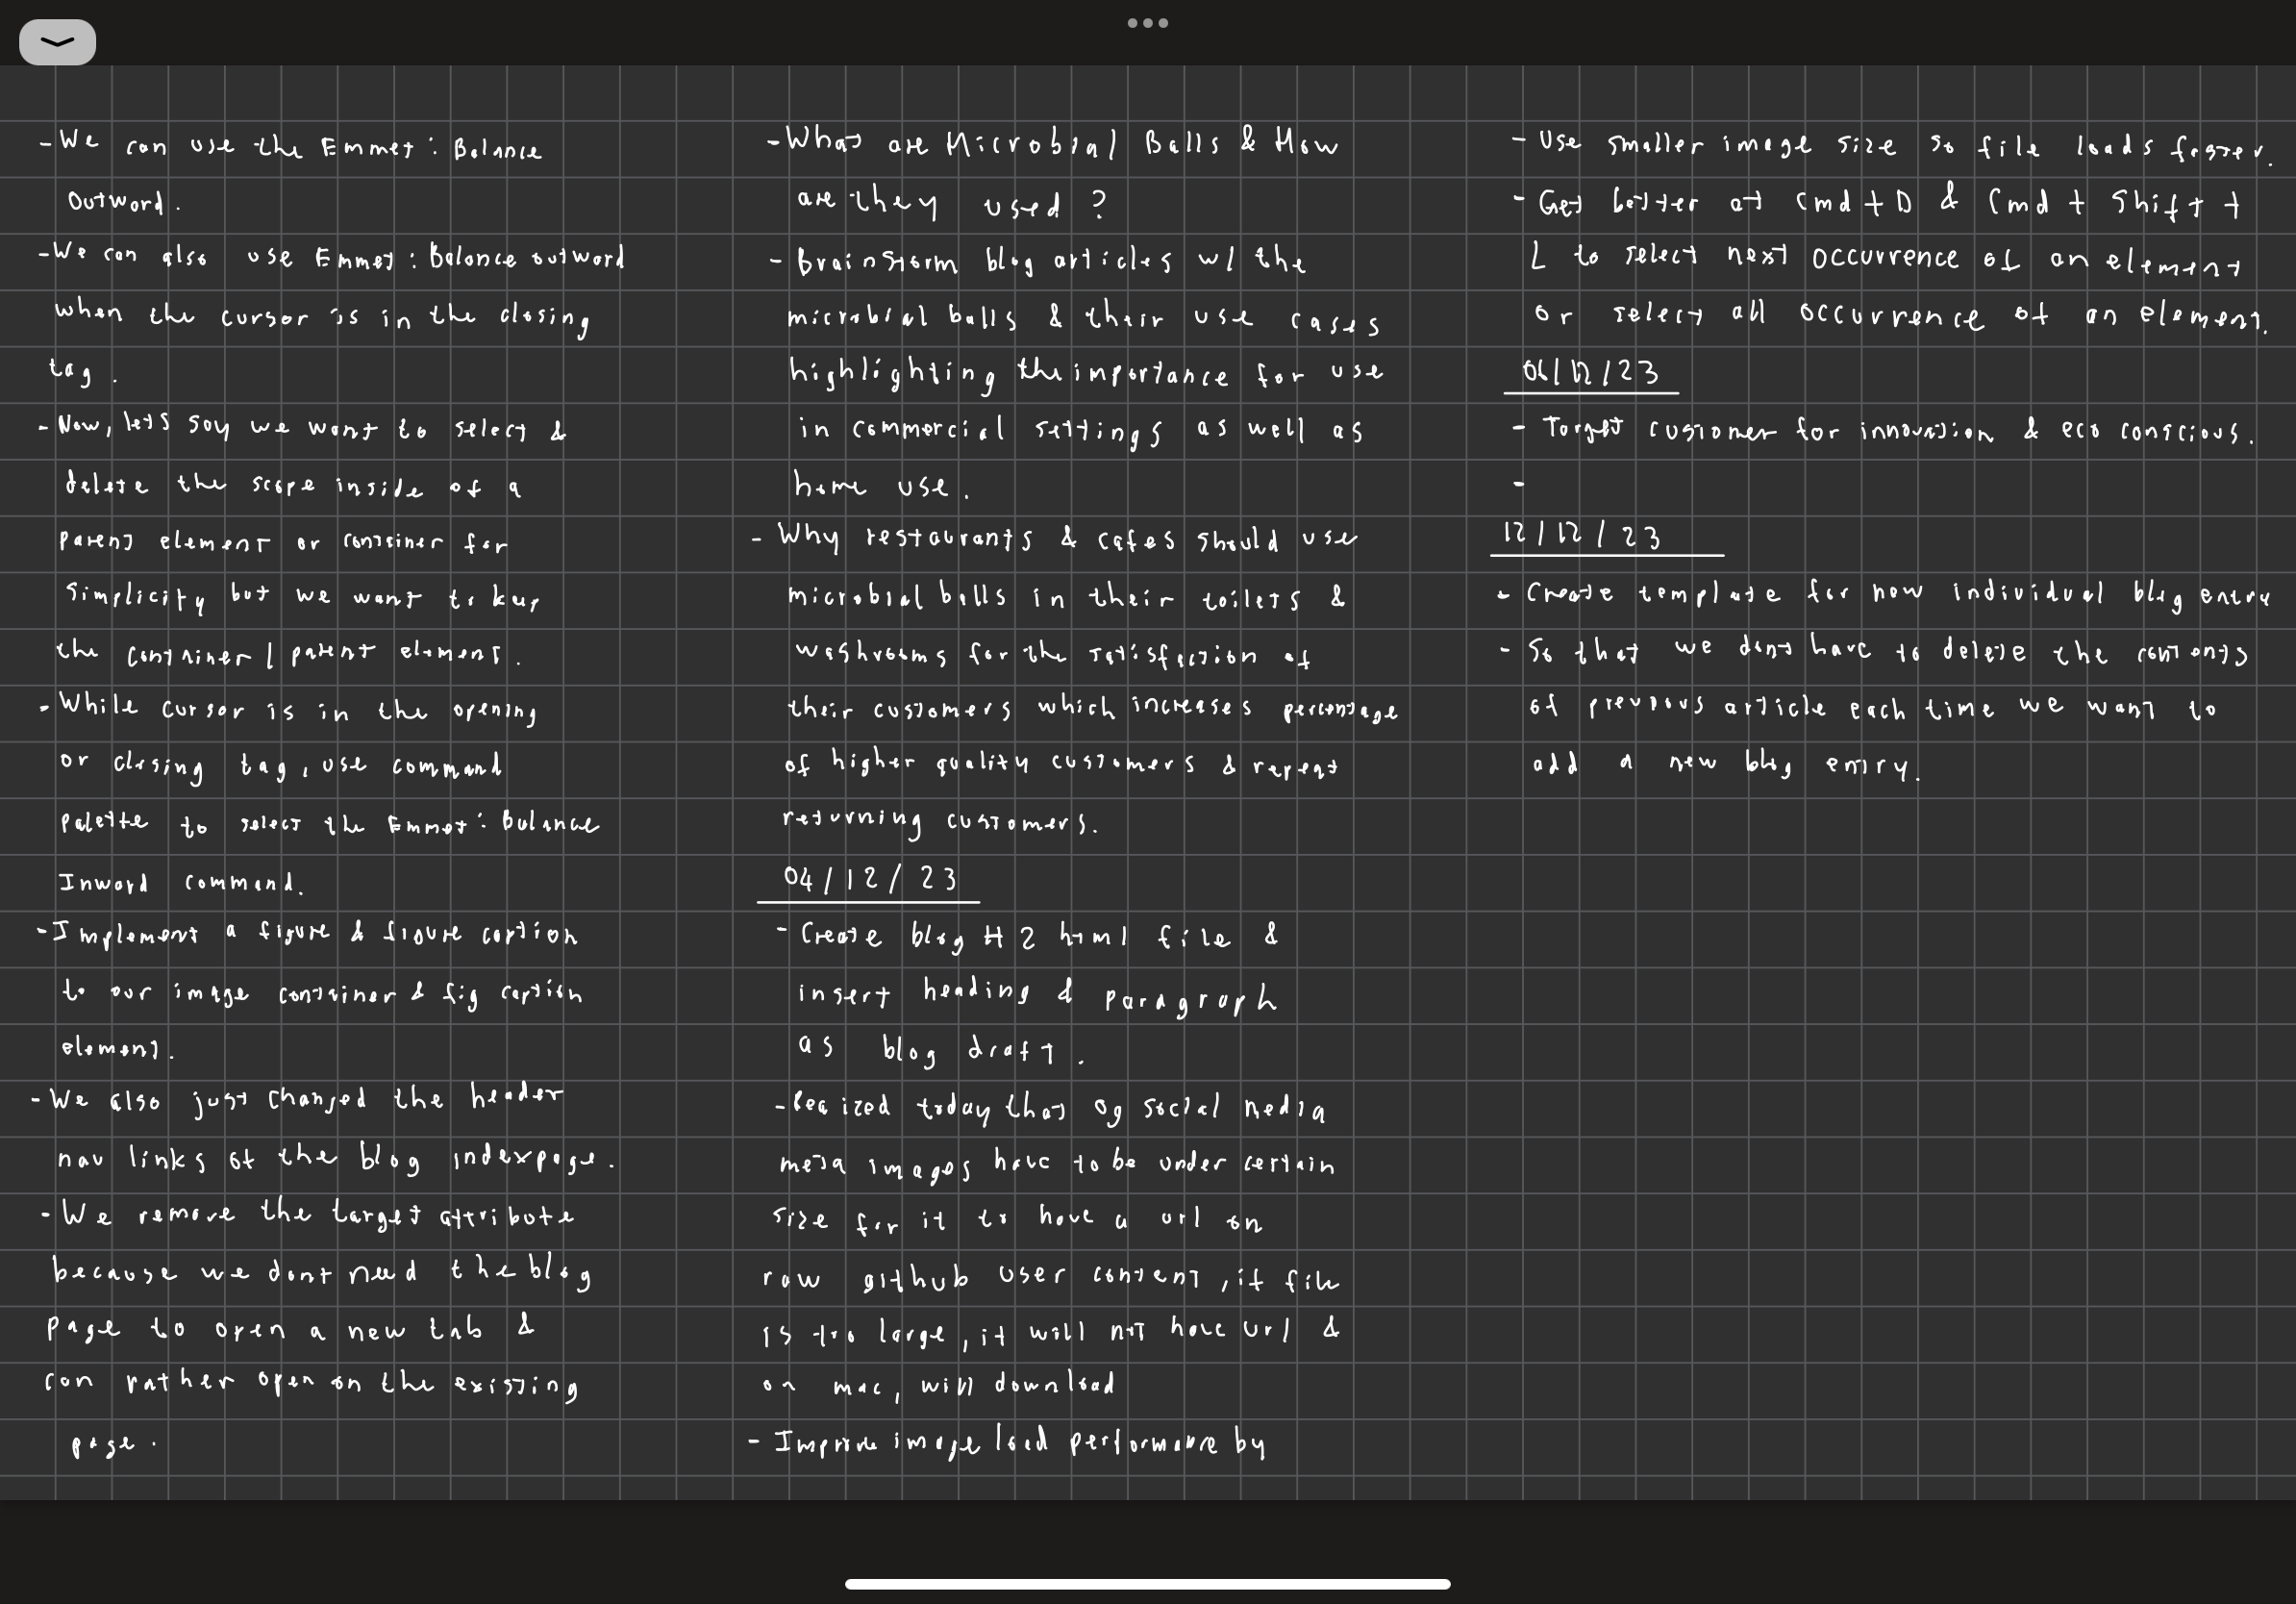 - We can use the Emmet: Balance
Outward.
- We can also use Emmet: Balance outward
when the cursor is in the closing
tag.
- Now, lets say we want to select &
delete the scope inside of a
parent element or container for
simplicity but we want to keep
the container / parent element.
- While cursor is in the opening
or closing tag, use command
palette to select the Emmet: Balance
Inward command.
- Implement a figure & figure caption
to our image container & fig caption
element.
- We also just changed the header
nav links of the blog index page.
- We remove the target attribute
because we dont need the blog
page to open a new tab &
can rather open on the existing
page.
- What are Microbial Balls & How
are they used?
- Brainstorm blog articles w/ the
microbial balls & their use cases
highlighting the importance for use
in commercial settings as well as
home use.
- Why restaurants & cafes should use
microbial balls in their toilets &
washrooms for the satisfaction of
their customers which increases percentage
of higher quality customers & repeat
returning customers.
04/12/23
- Create blog #2 html file &
insert heading & paragraph
as blog draft.
- Reaized today that og social media
meta images have to be under certain
size for it to have a url on
raw github user content, if file
is too large, it will not have url &
on mac, will download
- Improve image load performance by
- Use smaller image size so file loads faster.
- Get better at Cmd + D & Cmd + Shift +
L to select next occurrence of an element
or select all occurrence of an element.
06/12/23
- Target customer for innovation & eco conscious.
-
12/12/23
- Create template for new individual blog entry
- So that we dont have to delete the contents
of previous article each time we want to
add a new blog entry.